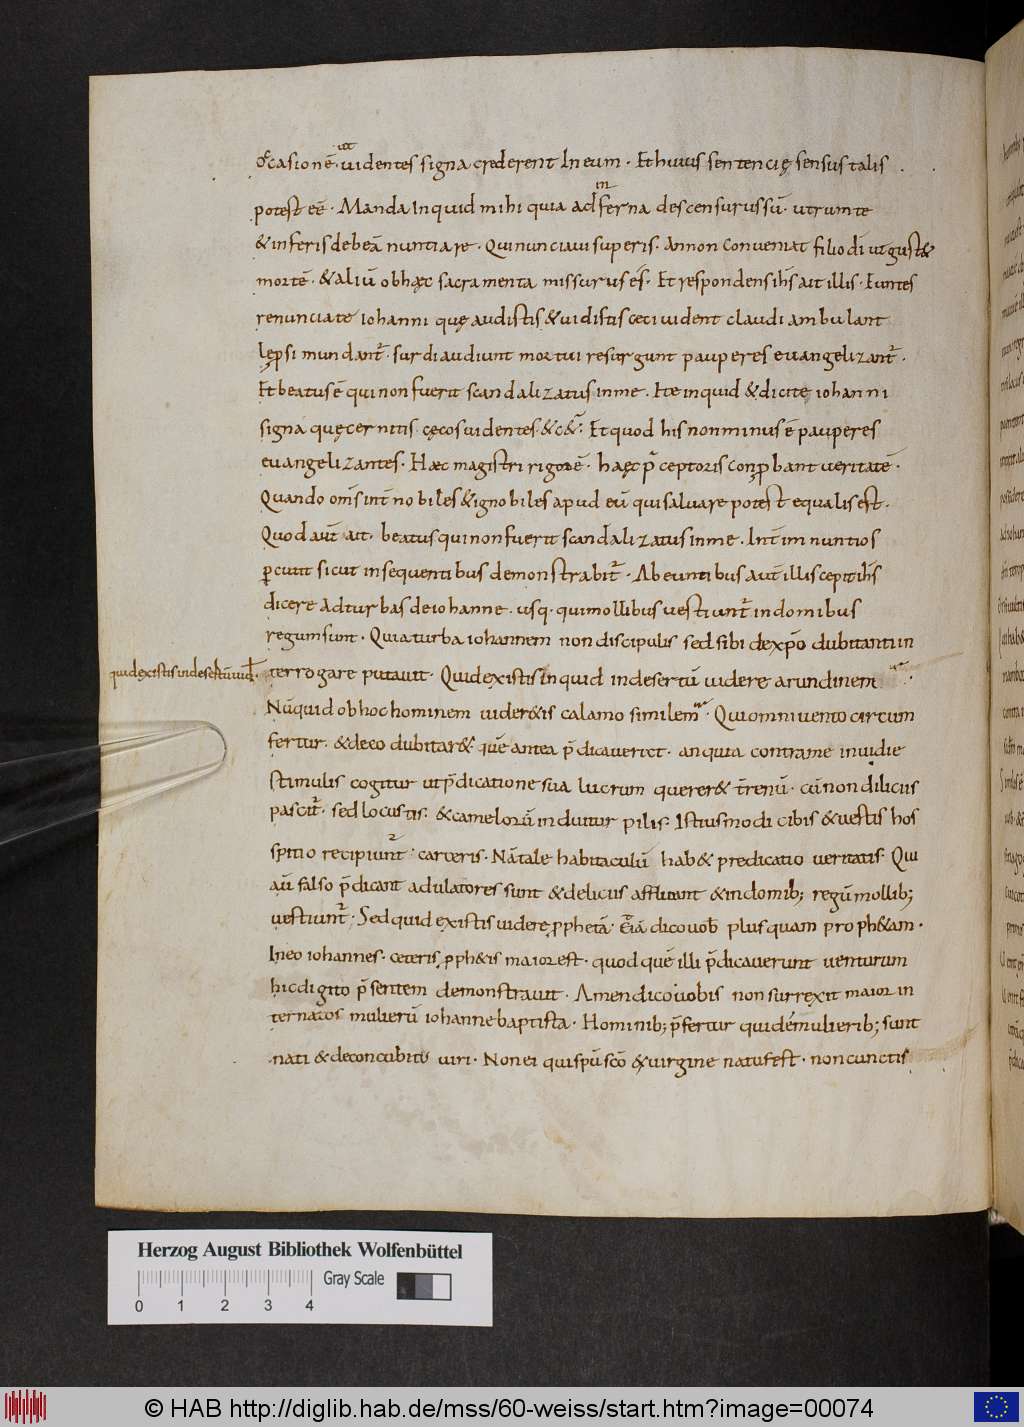 occasionē · ut uidentes signa crederent In eum · Et huius sentencię sensus talis
potest eē · Manda Inquid mihi quia ad inferna descensurus sū · utrum te
& inferis debeā nuntiare · Qui nunciaui superis · An non conueniat filio dī ut gust&
mortē · & aliū ob hęc sacramenta missurus es · Et respondens ihs ait illis · Euntes
renunciate iohanni quę audistis & uidistis ceci uident claudi ambulant
lępsi mundant᷑ · surdi audiunt mortui resurgunt pauperes euangelizant᷑ ·
Et beatus ē qui non fuerit scandalizatus in me · Ite inquid & dicite iohanni
signa quę cernitis · cęcos uidentes · &c& · Et quod his non minus ē pauperes
euangelizantes · Hæc magistri rigorē · hæc p̄ceptoris conprobant ueritatē ·
Quando om̄s int̄ nobiles & ignobiles apud eū qui saluare potest equalis est ·
Quod aut̄ ait · beatus qui non fuerit scandalizatus in me · Int̄im nuntios
ꝑcutit sicut in sequentibus demonstrabit᷑ · Abeuntibus aut̄ illis cepit ihs
dicere ad turbas de iohanne · usq · qui mollibus uestiunt᷑ in domibus
regum sunt · Quia turba iohannem non discipulis sed sibi de xp̄o dubitantī in
quid existis in desertū uid
terrogare putauit · Quid existis Inquid in desertū uidere arundinem
Nūquid ob hoc hominem uider&is calamo similem · Qui omni uento circum
fertur · & de eo dubitar& · quē antea p̄dicauerit · an quia contra me inuidie
stimulis cogitur ut p̄dicatione sua lucrum querer& t̄renū · cū non diliciis
pascit᷑ · sed locustis · & camelorū induitur pilis · Istiusmodi cibis & uestis hos
spitio recipiunt᷑ carceris · Nā tale habitaculū hab& predicatio ueritatis · Qui
aū falso p̄dicant adulatores sunt & deliciis affluunt & in domib; regū mollib;
uestiunt᷑ · Sed quid existis uidere prophetā · Etiā dico uob plus quam proph&am ·
In eo iohannes · ceteris proph&is maior est · quod quē illi p̄dicauerunt uenturum
hic digito p̄sentem demonstrauit · Amen dico uobis non surrexit maior in
ter natos mulierū iohanne baptista · Hominib; p̄fertur quidē mulierib; sunt
nati & de concubitu uiri · Non ei qui spū scō & uirgine natus est · non cunctis
Herzog August Bibliothek Wolfenbüttel
Gray Scale
0 1 2 3 4
© HAB http://diglib.hab.de/mss/60-weiss/start.htm?image=00074